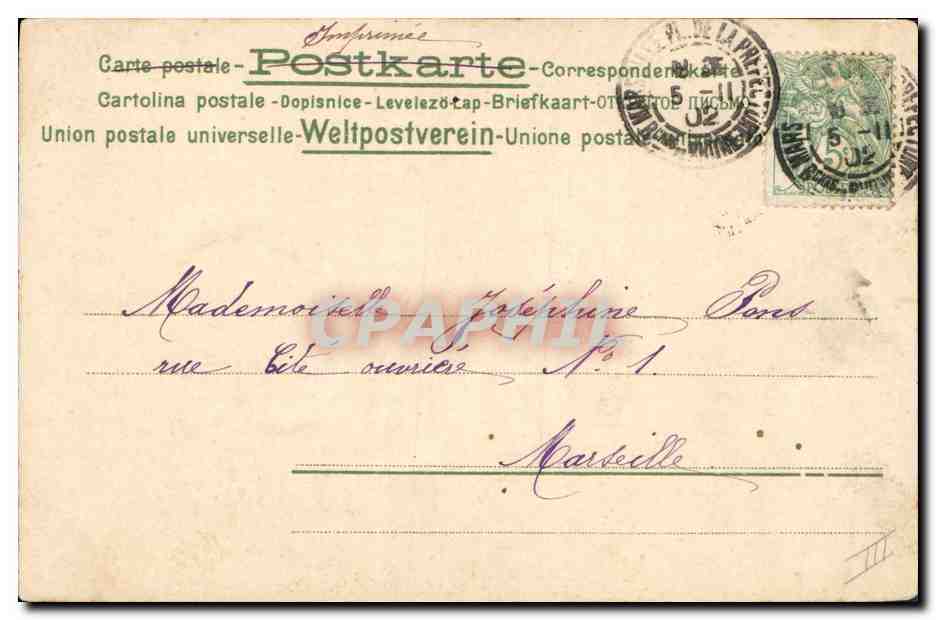 Imprimée
Carte postale - Postkarte - Correspondenzkarte
Cartolina postale - Dopisnice - Levelező-Lap - Briefkaart - ОТКРЫТОЕ ПИСЬМО
Union postale universelle - Weltpostverein - Unione postale
DE LA PRÉFECTURE
5 -11
02
5 -11
02
5c
Mademoiselle Joséphine Pons
rue Cité ouvrière No 1.
Marseille
CPAPHIL
III